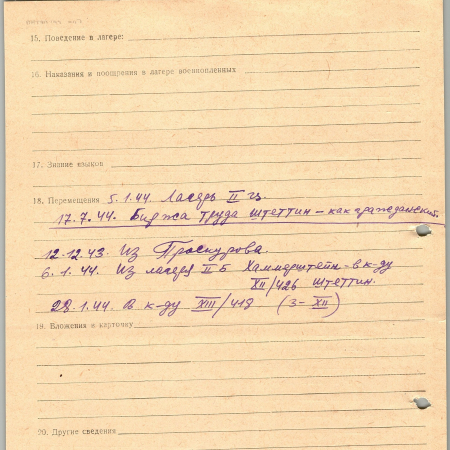 15. Поведение в лагере:
16. Наказания и поощрения в лагере военнопленных
17. Знание языков
18. Перемещения 5.1.44. Лагерь II
17.7.44. Биржа труда Штеттин – как гражданский.
12.12.43. Из Проскурова.
6.1.44. Из лагеря II Б Хаммерштейн – в к-ду
XII/426 Штеттин.
28.1.44. В к-ду XIII/418 (З-XII)
19. Вложения в карточку
20. Другие сведения